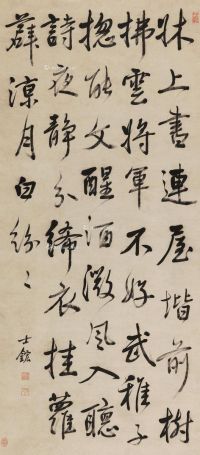 床上書連屋階前樹
拂雲將軍不好武稚子
揔能文醒酒微風入聽
詩夜靜分絺衣挂蘿
薜涼月白紛〻
士鋐